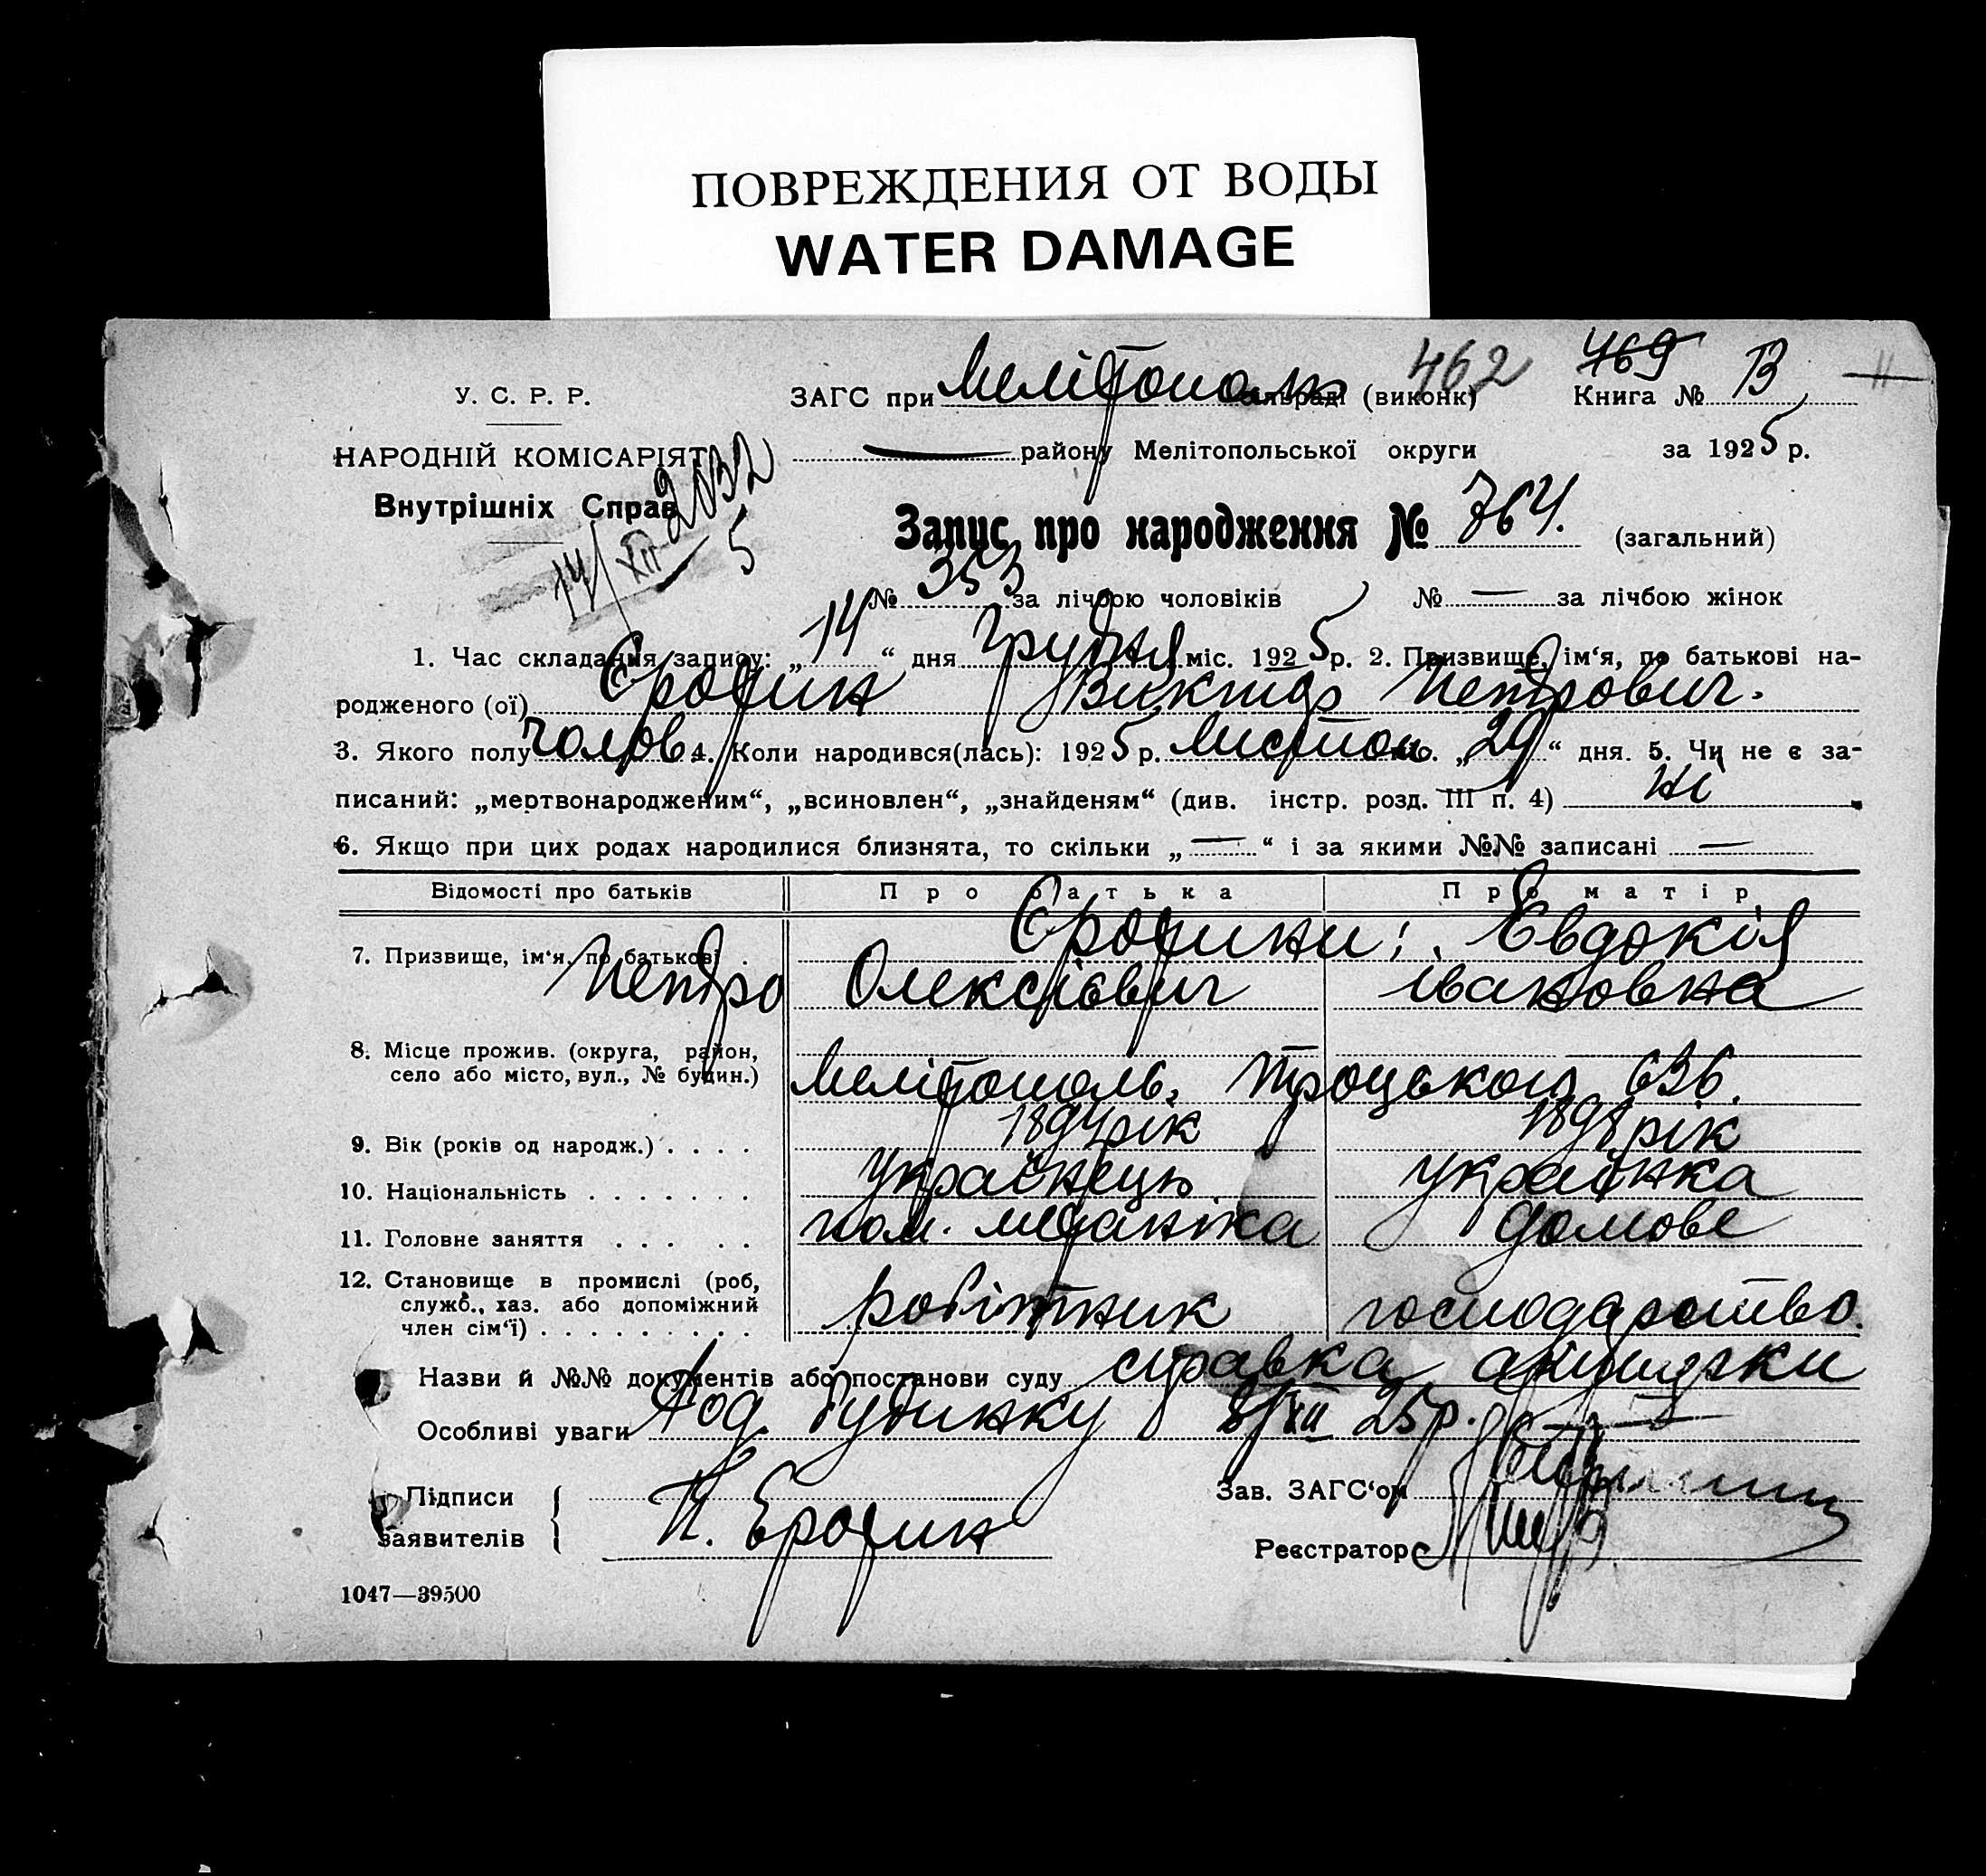 ПОВРЕЖДЕНИЯ ОТ ВОДЫ
WATER DAMAGE
462 469
У. С. Р. Р.
ЗАГС при Мелітополь сільраді (виконк) Книга № В
НАРОДНІЙ КОМІСАРІЯТ
району Мелітопольської округи за 1925 р.
Внутрішніх Справ
2032
14/XII 5
Запис про народження № 764. (загальний)
№ 353 за лічбою чоловіків № — за лічбою жінок
1. Час складання запису: „14“ дня Грудня міс. 1925 р. 2. Призвище, ім‘я, по батькові на-
родженого (ої) Єрофин Виктор Петрович.
3. Якого полу чолов. 4. Коли народився(лась): 1925 р. Листоп. міс. „29“ дня. 5. Чи не є за-
писаний: „мертвонародженим“, „всиновлен“, „знайденям“ (див. інстр. розд. III п. 4) ні
6. Якщо при цих родах народилися близнята, то скільки „—“ і за якими №№ записані —
Відомості про батьків Про батька Про матір
7. Призвище, ім‘я, по батькові . Єрофини: Евдокія
Петро Олексієвич Івановна
8. Місце прожив. (округа, район,
село або місто, вул., № будин.) Мелітополь, Троцького 636.
9. Вік (років од народж.) . . . . 1894 рік 1898 рік
10. Національність . . . . . . . Українець українка
11. Головне заняття . . . . . пом. механіка домове
12. Становище в промислі (роб,
служб., хаз. або допоміжний
член сім‘ї) . . . . . . . . . робітник господарство.
Назви й №№ документів або постанови суду справка акушерки
Особливі уваги Род. будинку 8/XII 25 р.
Підписи
заявителів П. Ерофин
Зав. ЗАГС‘ом
Реєстратор
1047—39500